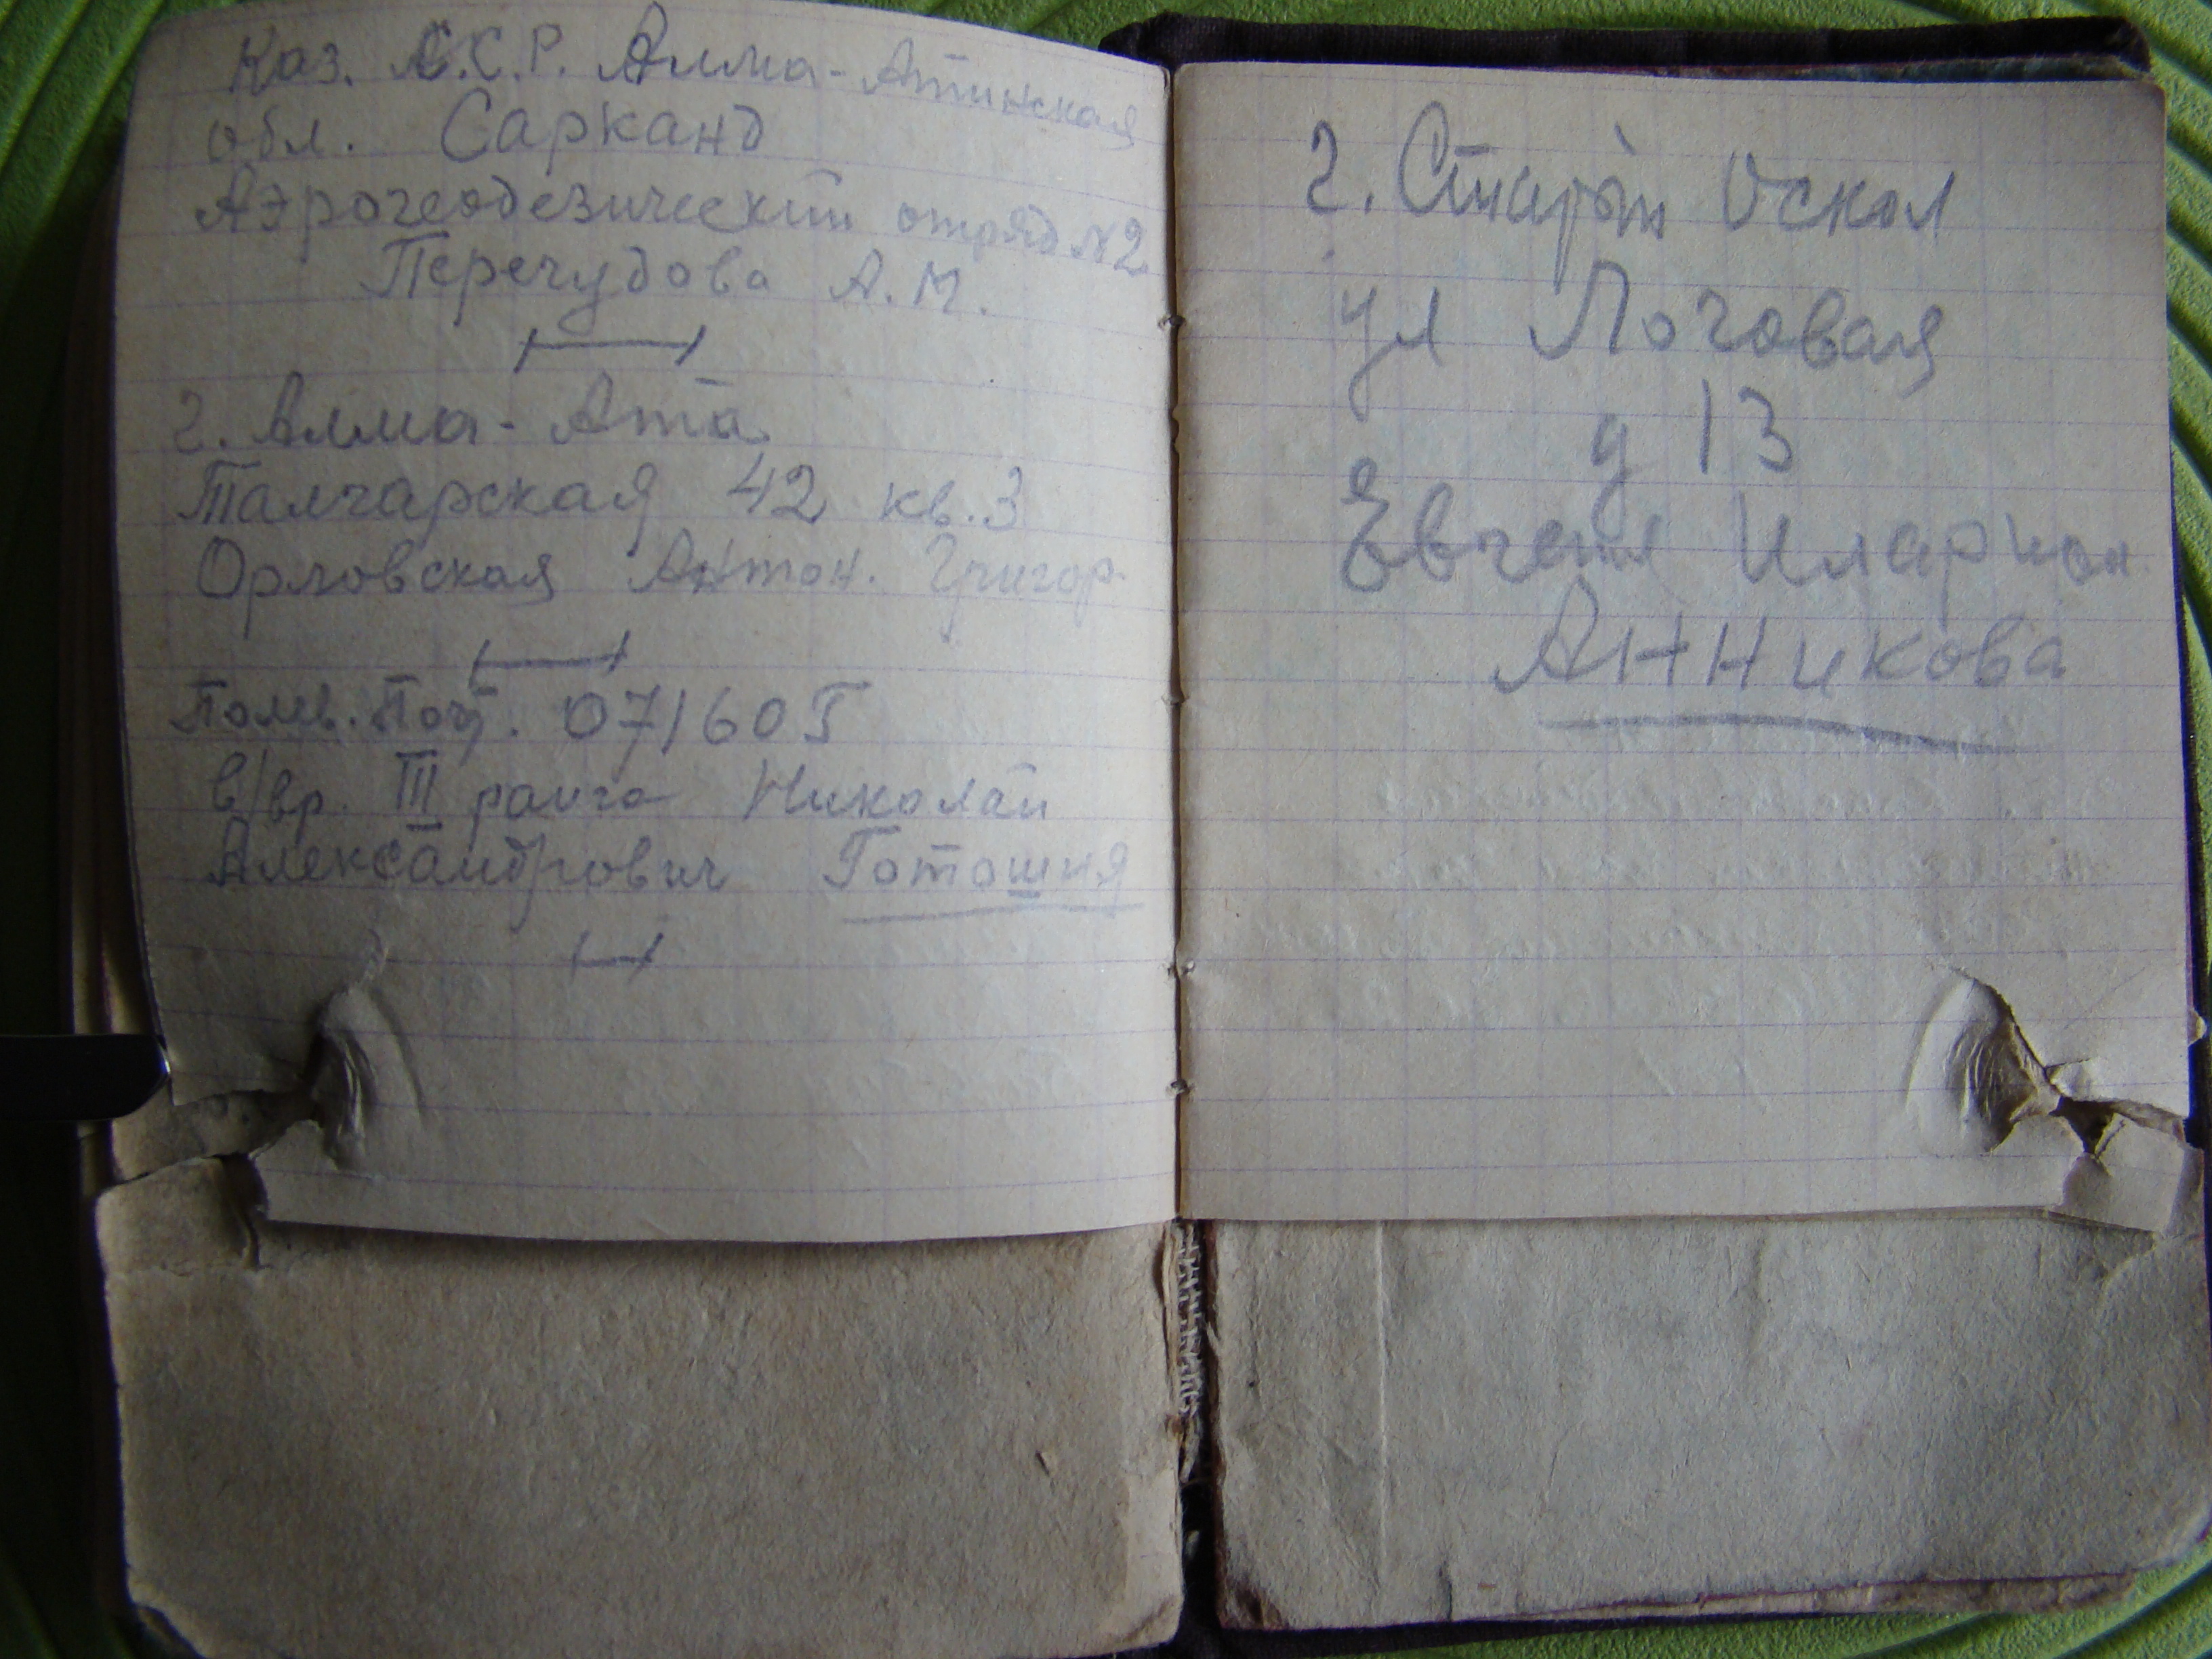 Каз. С.С.Р. Алма-Атинская
обл. Сарканд
Аэрогеодезический отряд №2
Перечудова А.М.
г. Алма-Ата
Талгарская 42 кв.3
Орловская Антон. Григор.
Полев. Почт. 07160 Г
в/вр. III ранга Николай
Александрович Готошия
г. Старый Оскол
ул Логовая
д 13
Евгения Иларион.
Анникова